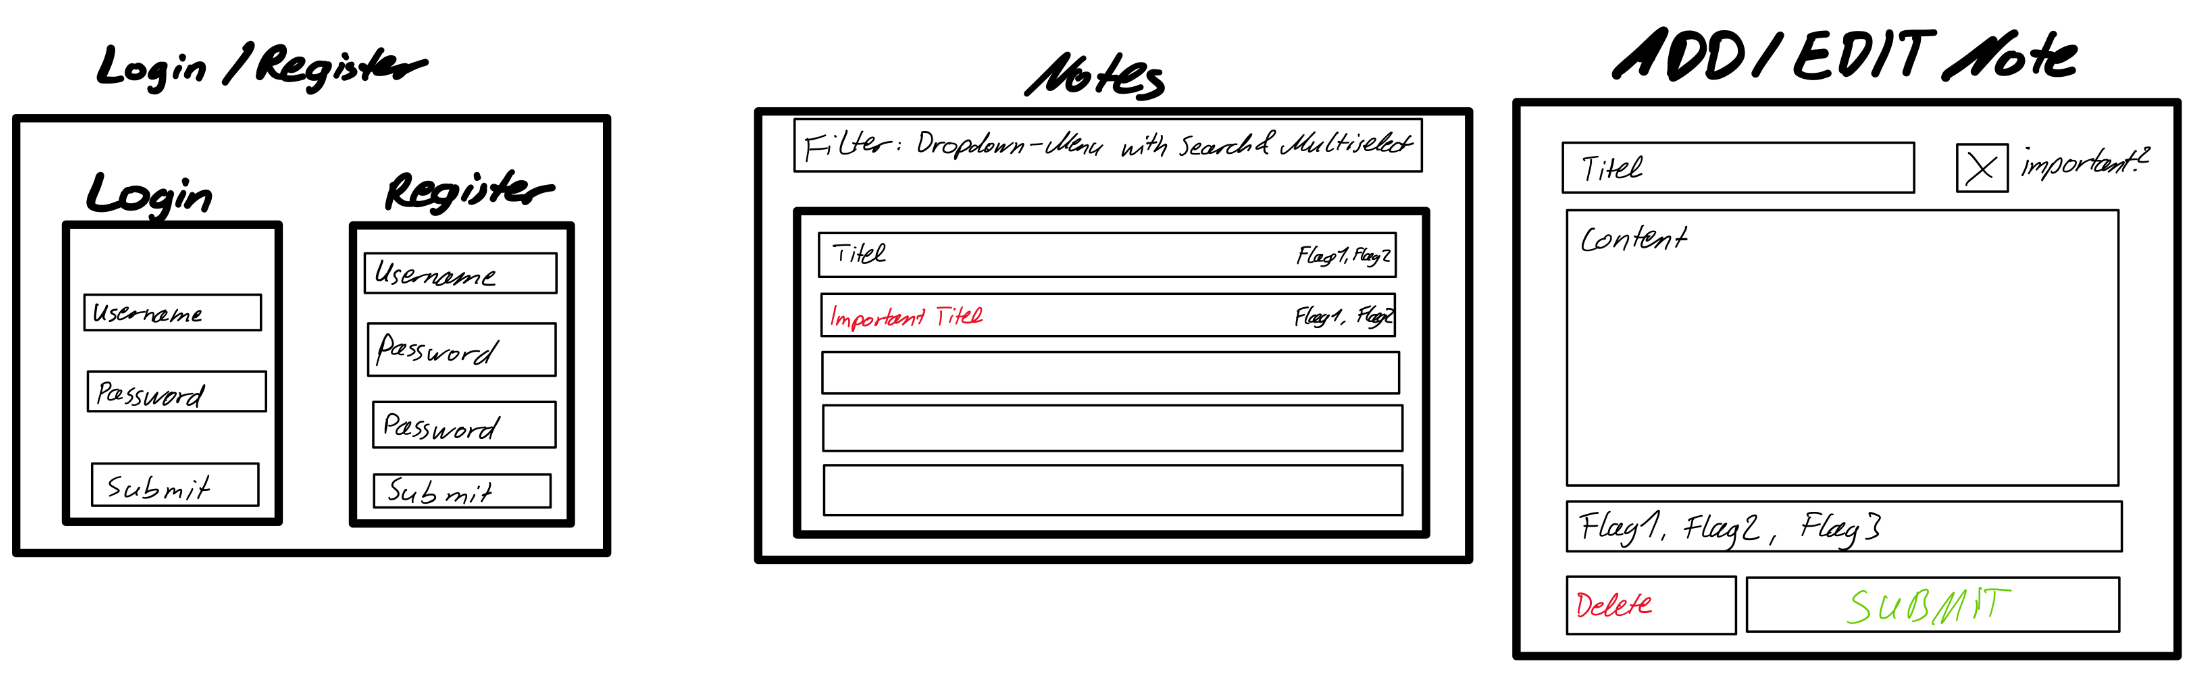 Login / Register
Login
Username
Password
Submit
Register
Username
Password
Password
Submit
Notes
Filter: Dropdown-Menu with Search & Multiselect
Titel
Flag1, Flag2
Important Titel
Flag1, Flag2
ADD / EDIT Note
Titel
X
important?
Content
Flag1, Flag2, Flag3
Delete
SUBMIT